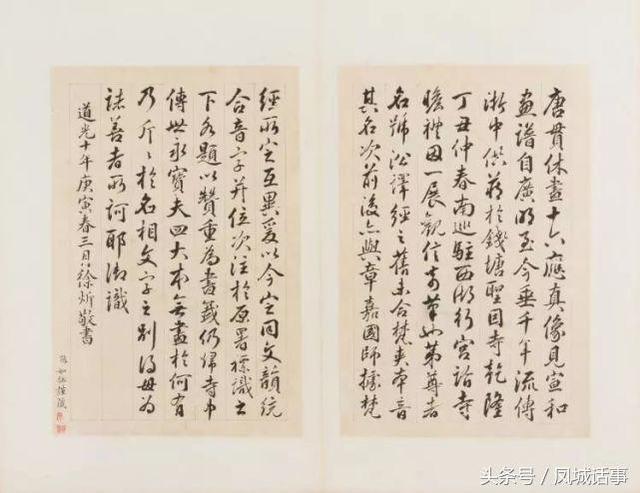 唐貫休畫十六應真像見宣和
畫譜自廣明至今垂千年流傳
浙中供藏於錢塘聖因寺乾隆
丁丑仲春南巡駐西湖行宮詣寺
瞻禮因一展觀信奇筆也第尊者
名號沿譯經之舊未合梵夾本音
其名次前後亦與章嘉國師據梵
經所定互異爰以今定同文韻統
合音字并位次注於原署標識之
下各題以贊重為書籤仍歸寺中
傳世永寶夫四大本無畫於何有
乃斤〻於名相文字之別得毋為
誌善者所訶耶御識
道光十年庚寅春三月徐炘敬書
头条号／凤城话事